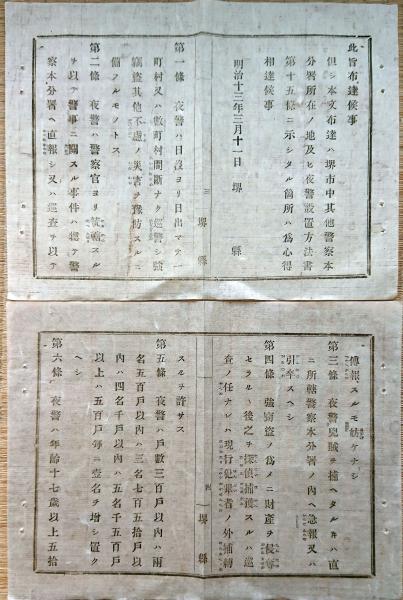 此旨布達候事
但シ本文布達ハ堺市中其他警察本
分署所在ノ地及ヒ夜警設置方法書
第十五條ニ示シタル箇所ハ為心得
相達候事
明治十三年三月十一日 堺縣
三 堺縣
第一條 夜警ハ日沒ヨリ日出マテ一
町村又ハ數町村間斷ナク巡警シ强
竊盜其他不慮ノ災害ヲ豫防スルニ
備フルモノトス
第二條 夜警ハ警察官ヨリ
ヲ以テ警事ニ關スル事件ハ總テ警
察本分署ヘ直報シ又ハ巡査ヲ以テ
傳報スルモ妨ケナシ
第三條 夜警兇賊ヲ捕ヘタルキハ直
ニ所轄警察本分署ノ內ヘ急報又ハ
引率スヘシ
第四條 強竊盜ノ為メニ財產ヲ侵奪
セラルヽ後之ヲ探偵捕獲スルハ巡
査ノ任ナレハ現行犯果者ノ外捕縛
四 堺縣
スルヲ許サス
第五條 夜警ハ戶數三百戶以內ハ兩
名五百戶以內ハ三名七百五拾戶以
內ハ四名千戶以內ハ五名千五百戶
以上ハ五百戶每ニ壹名ヲ增シ置ク
ヘシ
第六條 夜警ハ年齡十七歲以上五拾